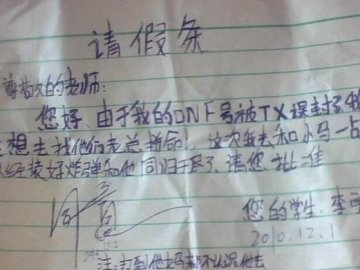 请假条
尊敬的老师:
您好,由于我的DNF号被TX误封
想去找他们老总拼命!这次我去和小马一
经装好炸弹和他同归于尽,请您批准
您的学生:李
2010.12.1
注:打到他妈都不认识他去